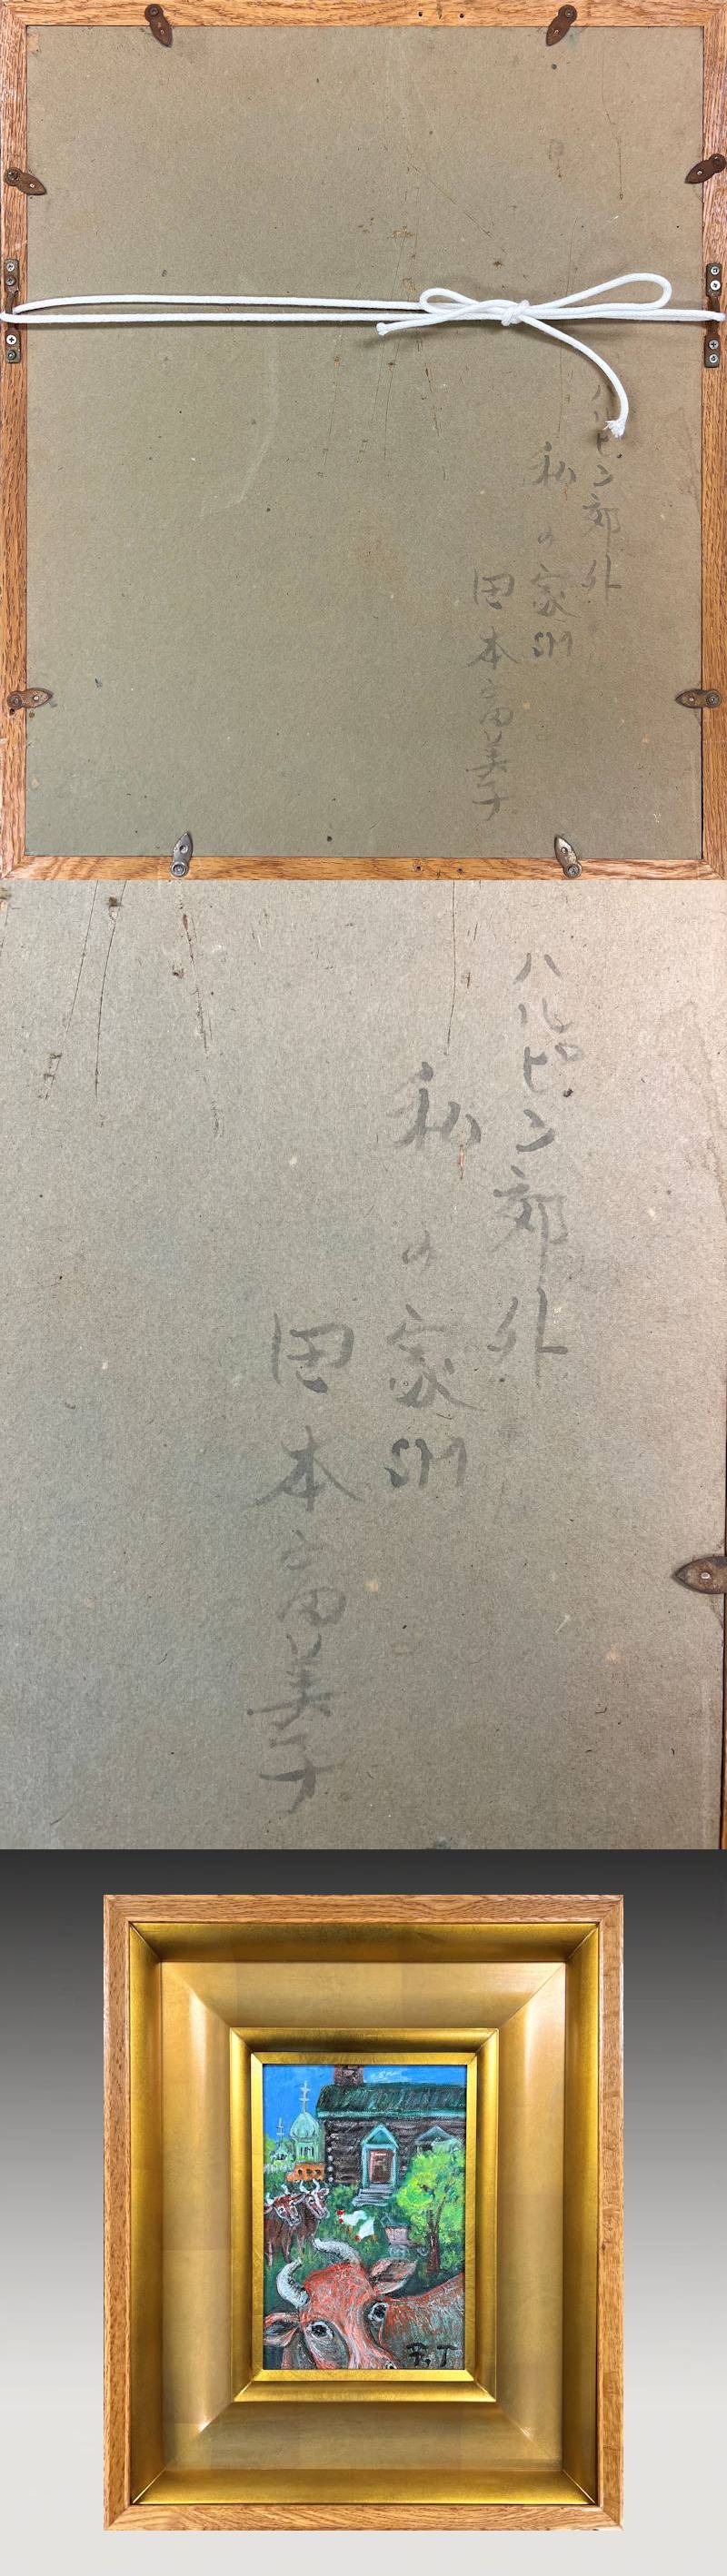 ハルピン郊外
私の家
田本富美子
ハルピン郊外
私の家
田本富美子
F.T